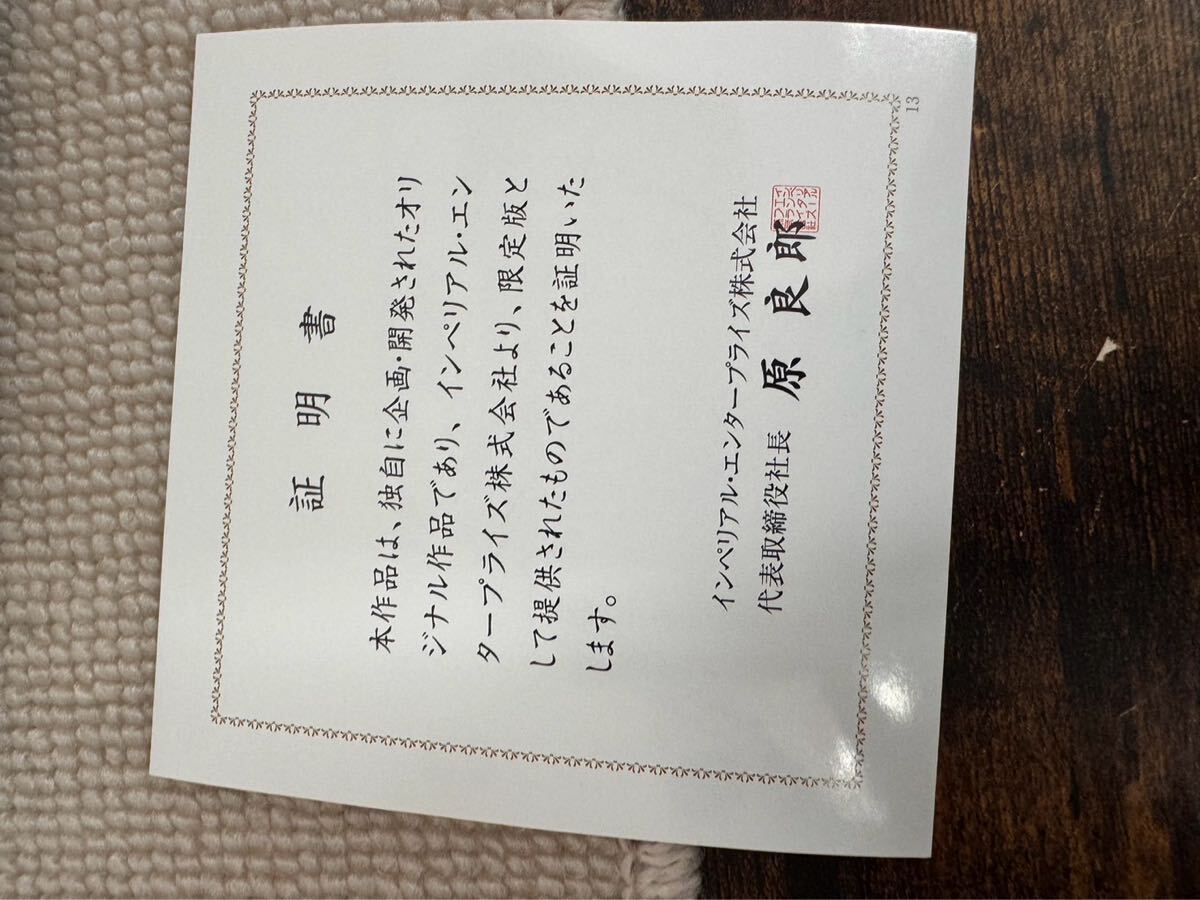 証明書
本作品は、独自に企画・開発されたオリ
ジナル作品であり、インペリアル・エン
タープライズ株式会社より、限定版と
して提供されたものであることを証明いた
します。
インペリアル・エンタープライズ株式会社
代表取締役社長 原良郎
13